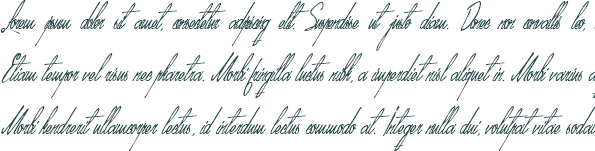 Lorem ipsum dolor sit amet, consectetur adipiscing elit. Suspendisse ut justo diam. Donec non convallis leo,
Etiam tempor vel risus nec pharetra. Morbi fringilla luctus nibh, a imperdiet nisl aliquet in. Morbi varius a
Morbi hendrerit ullamcorper lectus, id interdum lectus commodo at. Integer nulla dui, volutpat vitae soda